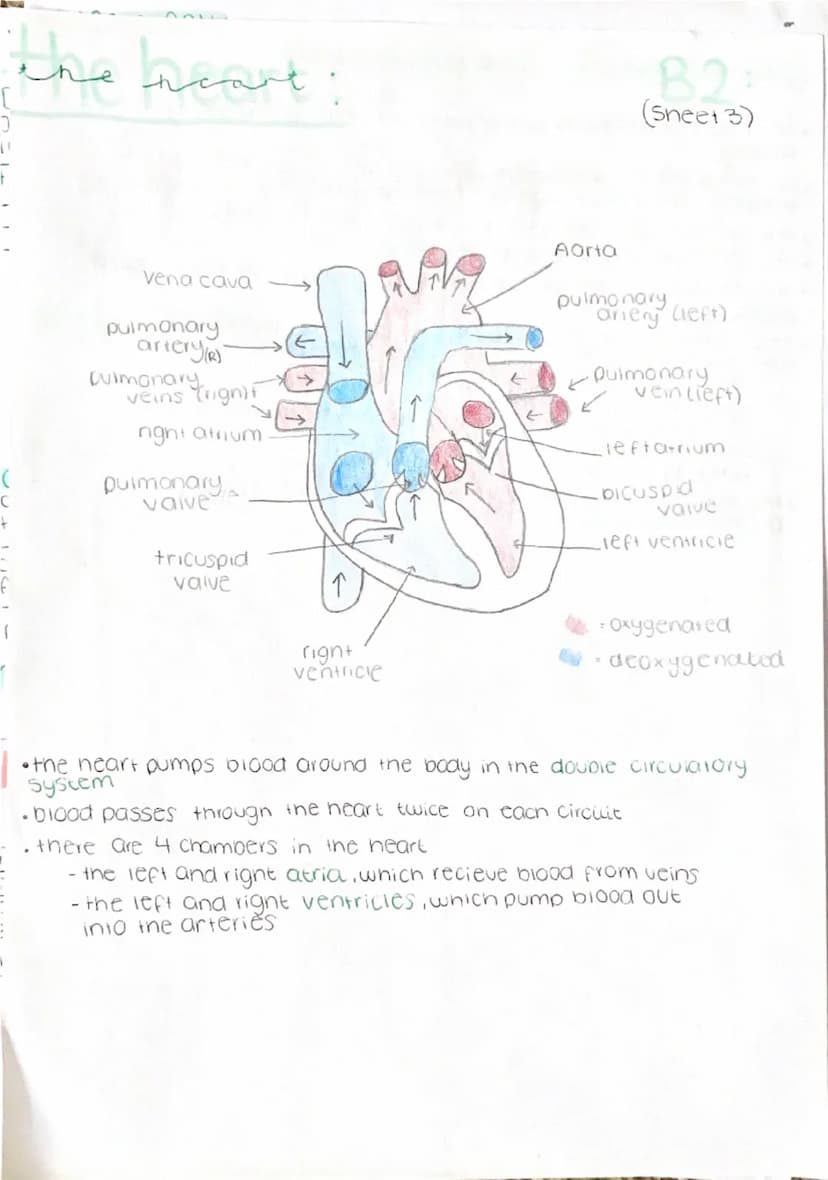 the heart:
B2:
(Sheet 3)
Aorta
vena cava
pulmonary
artery (left)
pulmonary
artery (R)
pulmonary
veins (right)
pulmonary
vein (left)
right atrium
left atrium
pulmonary
valve
bicuspid
valve
left ventricle
tricuspid
valve
right
ventricle
= oxygenated
= deoxygenated
•the heart pumps blood around the body in the double circulatory
system
•blood passes through the heart twice on each circuit
•there are 4 chambers in the heart
- the left and right atria, which recieve blood from veins
- the left and right ventricles, which pump blood out
into the arteries